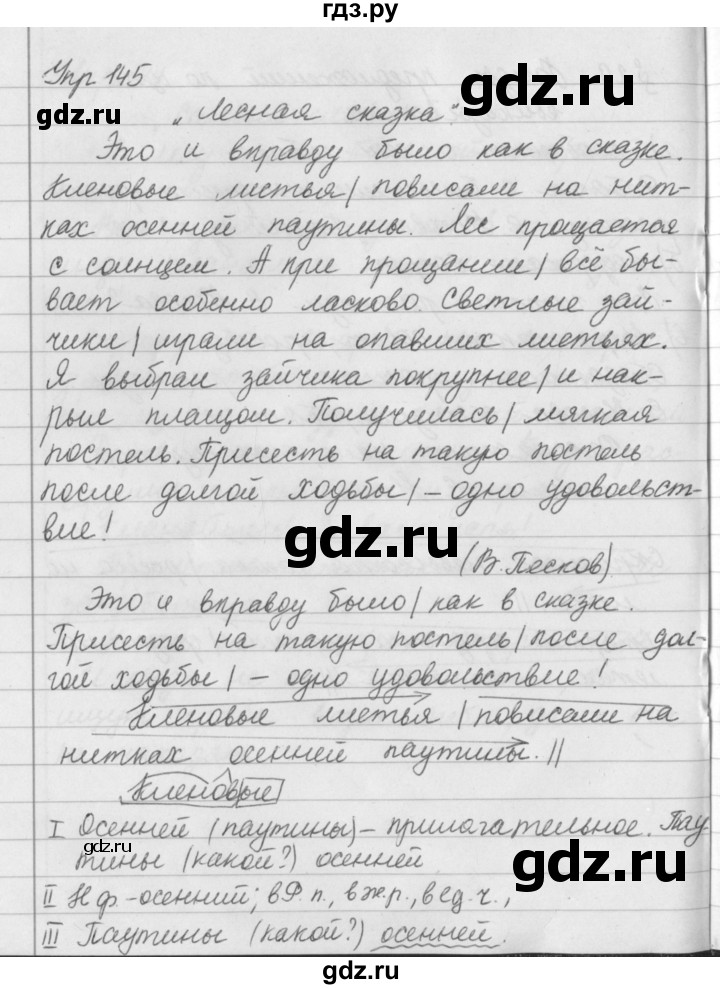 гдз.ру
Упр 145
„Лесная сказка".
Это и вправду было как в сказке.
Кленовые листья | повисали на нит-
ках осенней паутины. Лес прощается
с солнцем. А при прощании | всё бы-
вает особенно ласково. Светлые зай-
чики | играли на опавших листьях.
Я выбрал зайчика покрупнее | и нак-
рыл плащом. Получилась | мягкая
постель. Присесть на такую постель
после долгой ходьбы | – одно удовольст-
вие!
(В. Песков)
Это и вправду было | как в сказке.
Присесть на такую постель | после дол-
гой ходьбы | – одно удовольствие!
Кленовые листья | повисали на
нитках осенней паутины. ||
Кленовые
I Осенней (паутины) – прилагательное. Пау
тины (какой?) осенней
II Н.ф.-осенний; в Р.п., в ж.р., в ед.ч.,
III Паутины (какой?) осенней.
gdz.ru
gdz.ru
gdz.ru
gdz.ru
gdz.ru
gdz.ru
gdz.ru
gdz.ru
gdz.ru
gdz.ru
gdz.ru